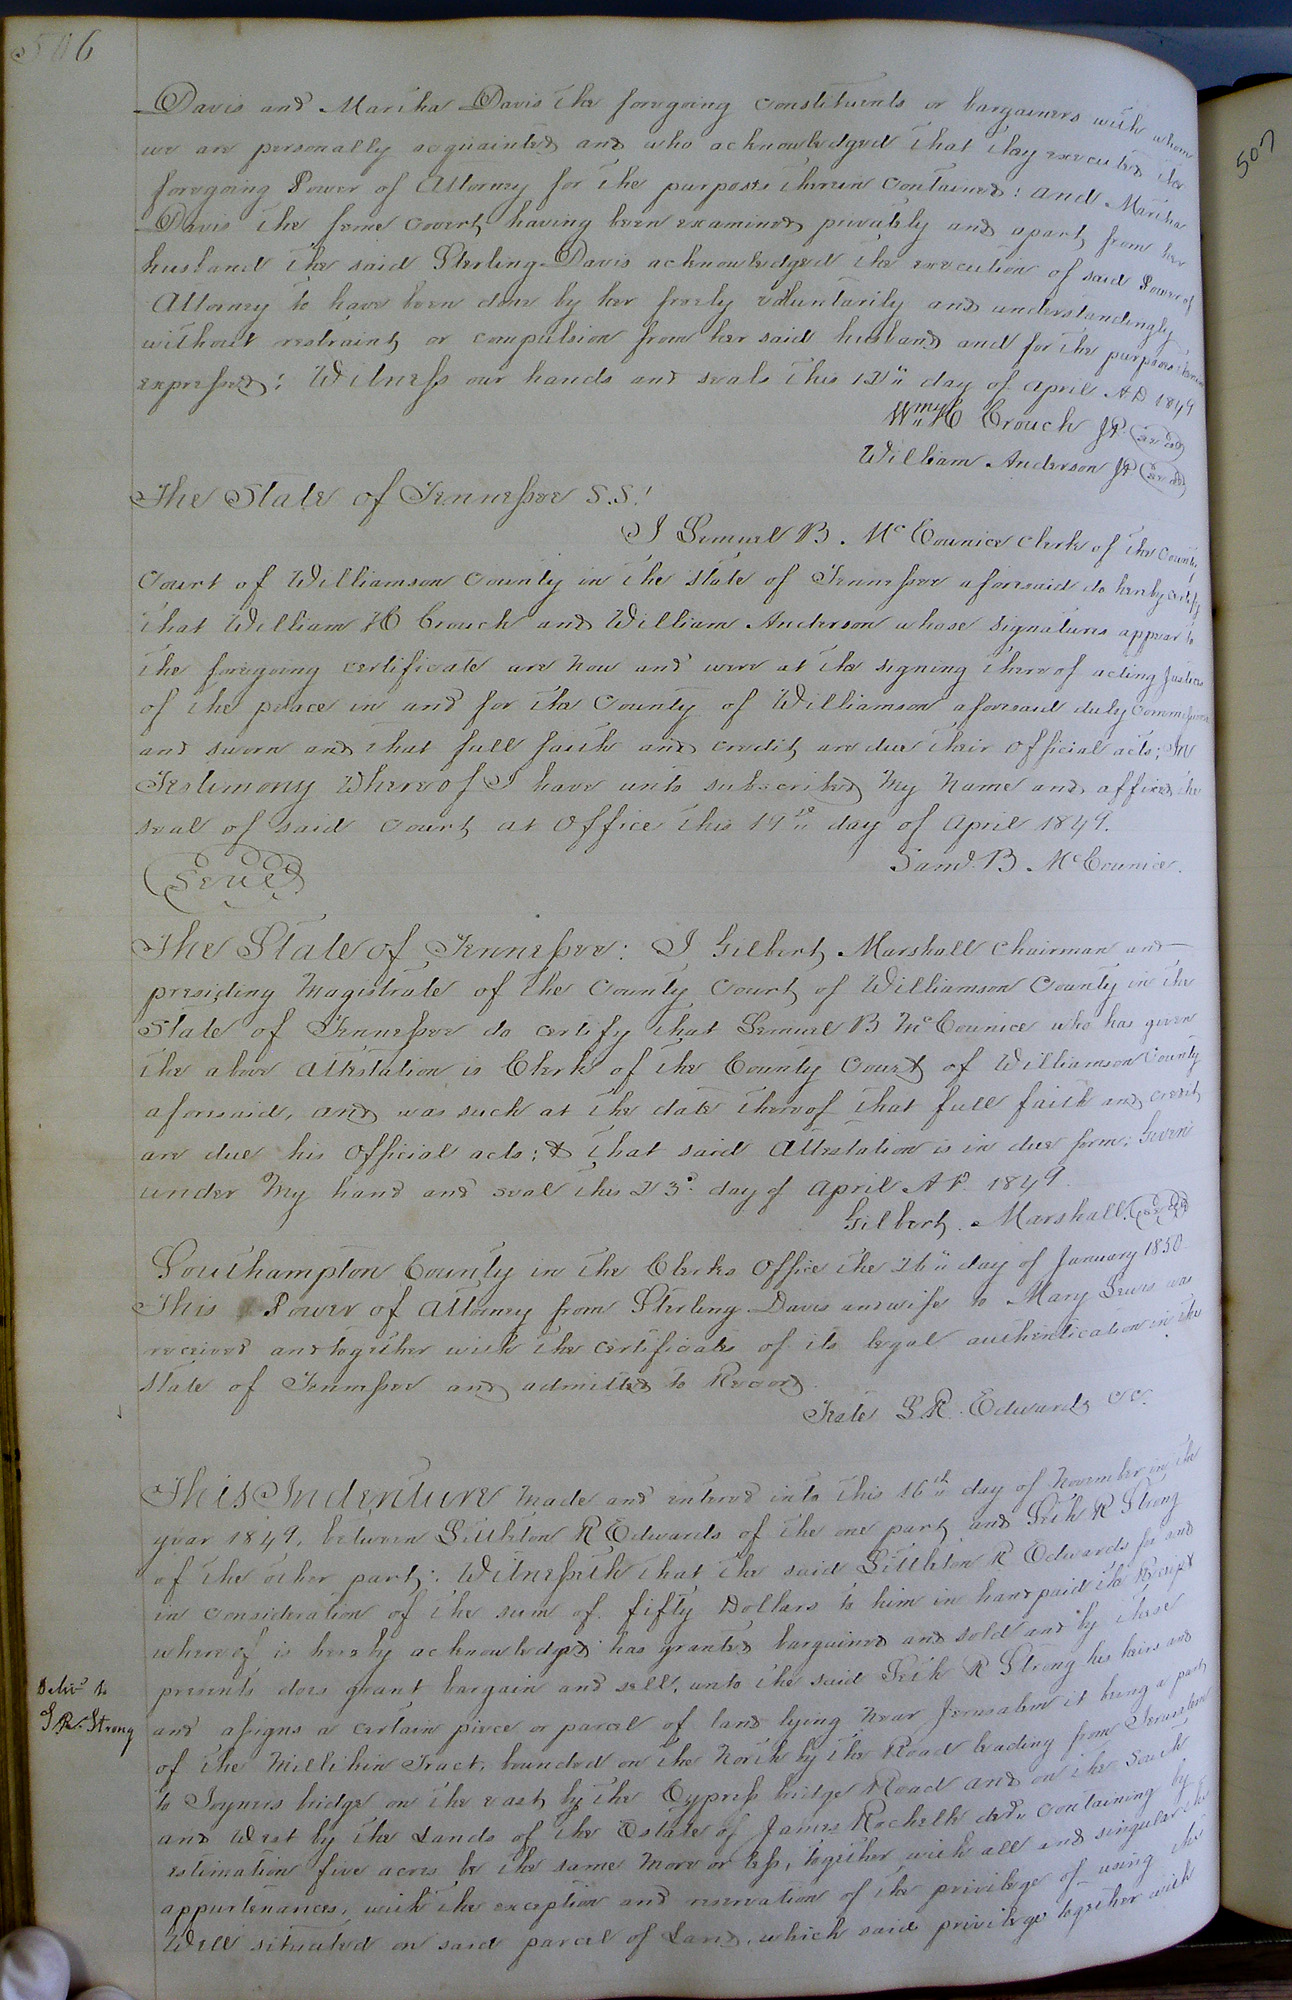 506
507
Davis and Martha Davis the foregoing constituents or bargainers with whom
we are personally acquainted and who acknowledged that they executed the
foregoing Power of Attorney for the purposes therein contained: and Martha
Davis the feme covert having been examined privately and apart from her
husband the said Sterling Davis acknowledged the execution of said Power of
Attorney to have been done by her freely voluntarily and understandingly
without restraint or compulsion from her said husband and for the purposes therein
expressed: Witness our hands and seals this 12" day of April AD 1849
Wm H Crouch JP. Seal
William Anderson JP Seal
The State of Tennessee S.S!
I Lemuel B. McCounice Clerk of the County
Court of Williamson County in the State of Tennessee aforesaid do hereby certify
that William H Crouch and William Anderson whose signatures appear to
the foregoing certificate are now and were at the signing thereof acting Justices
of the peace in and for the County of Williamson aforesaid duly Commissioned
and sworn and that full faith and credit are due their official acts; In
Testimony Whereof I have unto subscribed My Name and affixed the
seal of said Court at Office this day of April 1849.
B. McCounice.
Seal
The State of Tennessee: I Gilbert Marshall Chairman and
presiding Magistrate of the County Court of Williamson County in the
State of Tennessee do certify that Lemuel B McCounice who has given
the above Attestation is Clerk of the County Court of Williamson County
aforesaid, and was such at the date thereof that full faith and credit
are due his Official acts; & that said Attestation is in due form; Given
under My hand and seal this 23d. day of April AD. 1849.
Gilbert. Marshall. Seal
Southampton County in the Clerks Office the 26" day of January 1850
This Power of Attorney from Sterling Davis and wife to Mary Lewis was
received and together with the certificates of its legal authentication in the
State of Tennessee and admitted to Record.
Teste L R. Edwards CC.
This Indenture Made and entered into this 16th day of November in the
year 1849, between Littleton R Edwards of the one part, and Seth R Strong
of the other part; Witnesseth that the said Littleton R Edwards for and
in consideration of the sum of fifty Dollars to him in hand paid the Receipt
whereof is hereby acknowledged has granted bargained and sold and by these
presents does grant bargain and sell, unto the said Seth R Strong his heirs and
and assigns a certain piece or parcel of land lying Near Jerusalem it being a part
of the Millikin Tract, bounded on the North by the Road leading from Jerusalem
to Joyners bridge on the east by the Cypress bridge Road and on the South
and West by the Lands of the Estate of James Rochelle decd. containing by
estimation five acres be the same More or less, together with all and singular the
appurtenances, with the exception and reservation of the privilege of using the
Well situated on said parcel of Land, which said privilege together with
Deliv'd to
S R. Strong